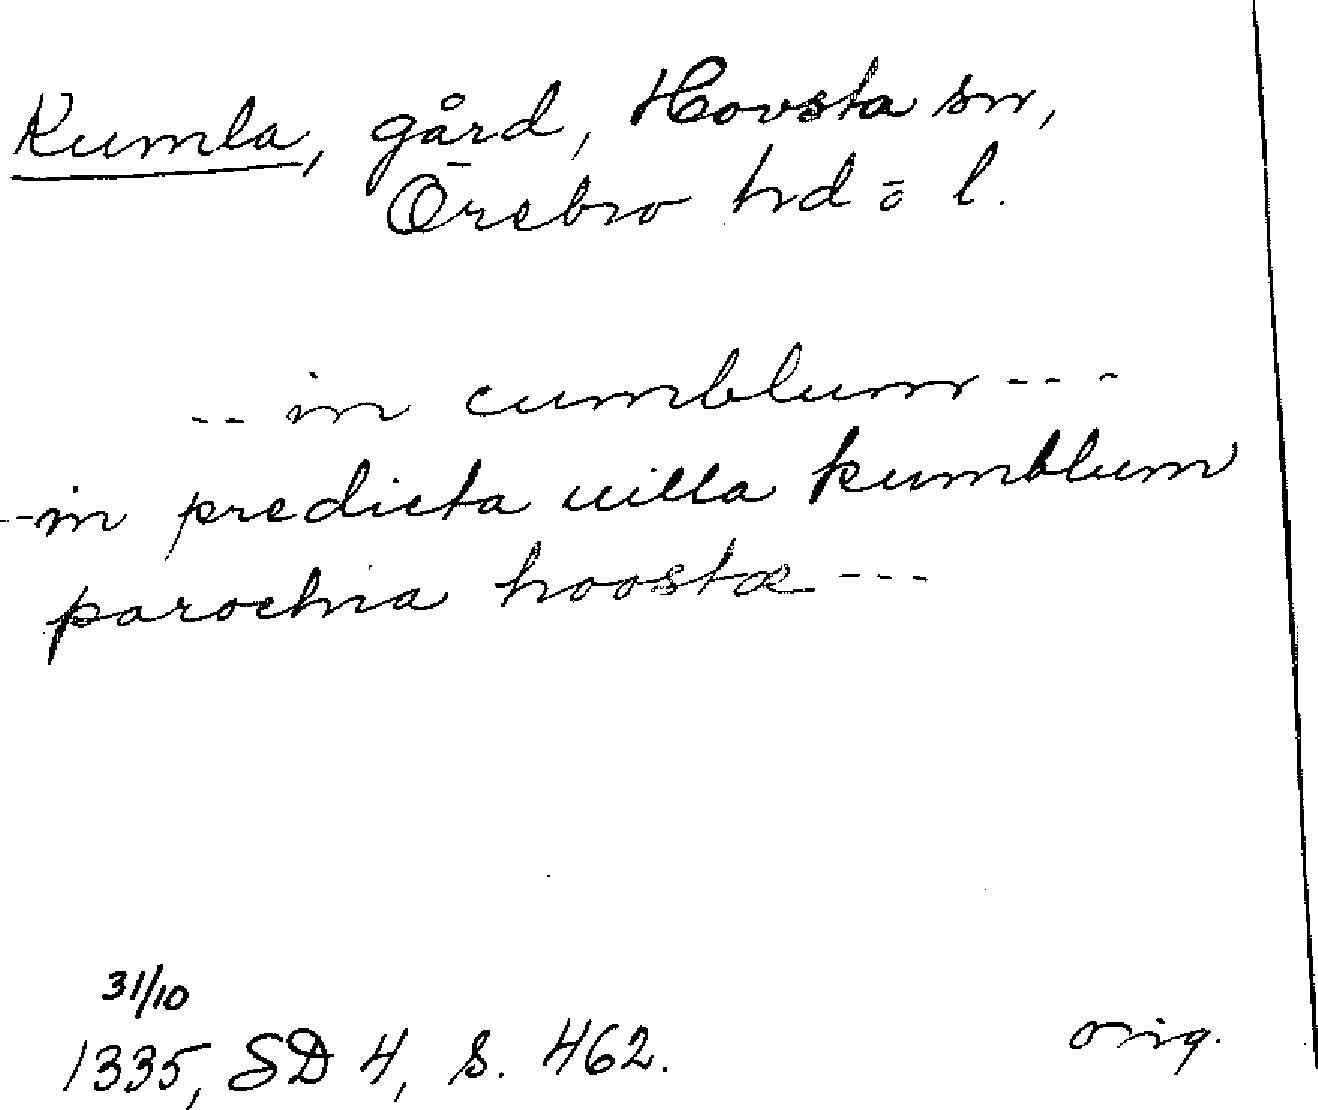 Kumla, gård, Hovsta sn,
Örebro hd ō l.
-- in cumblum ---
-- in predicta uilla kumblum
parochia hoostæ ---
31/10
1335, SD 4, s. 462.
orig.